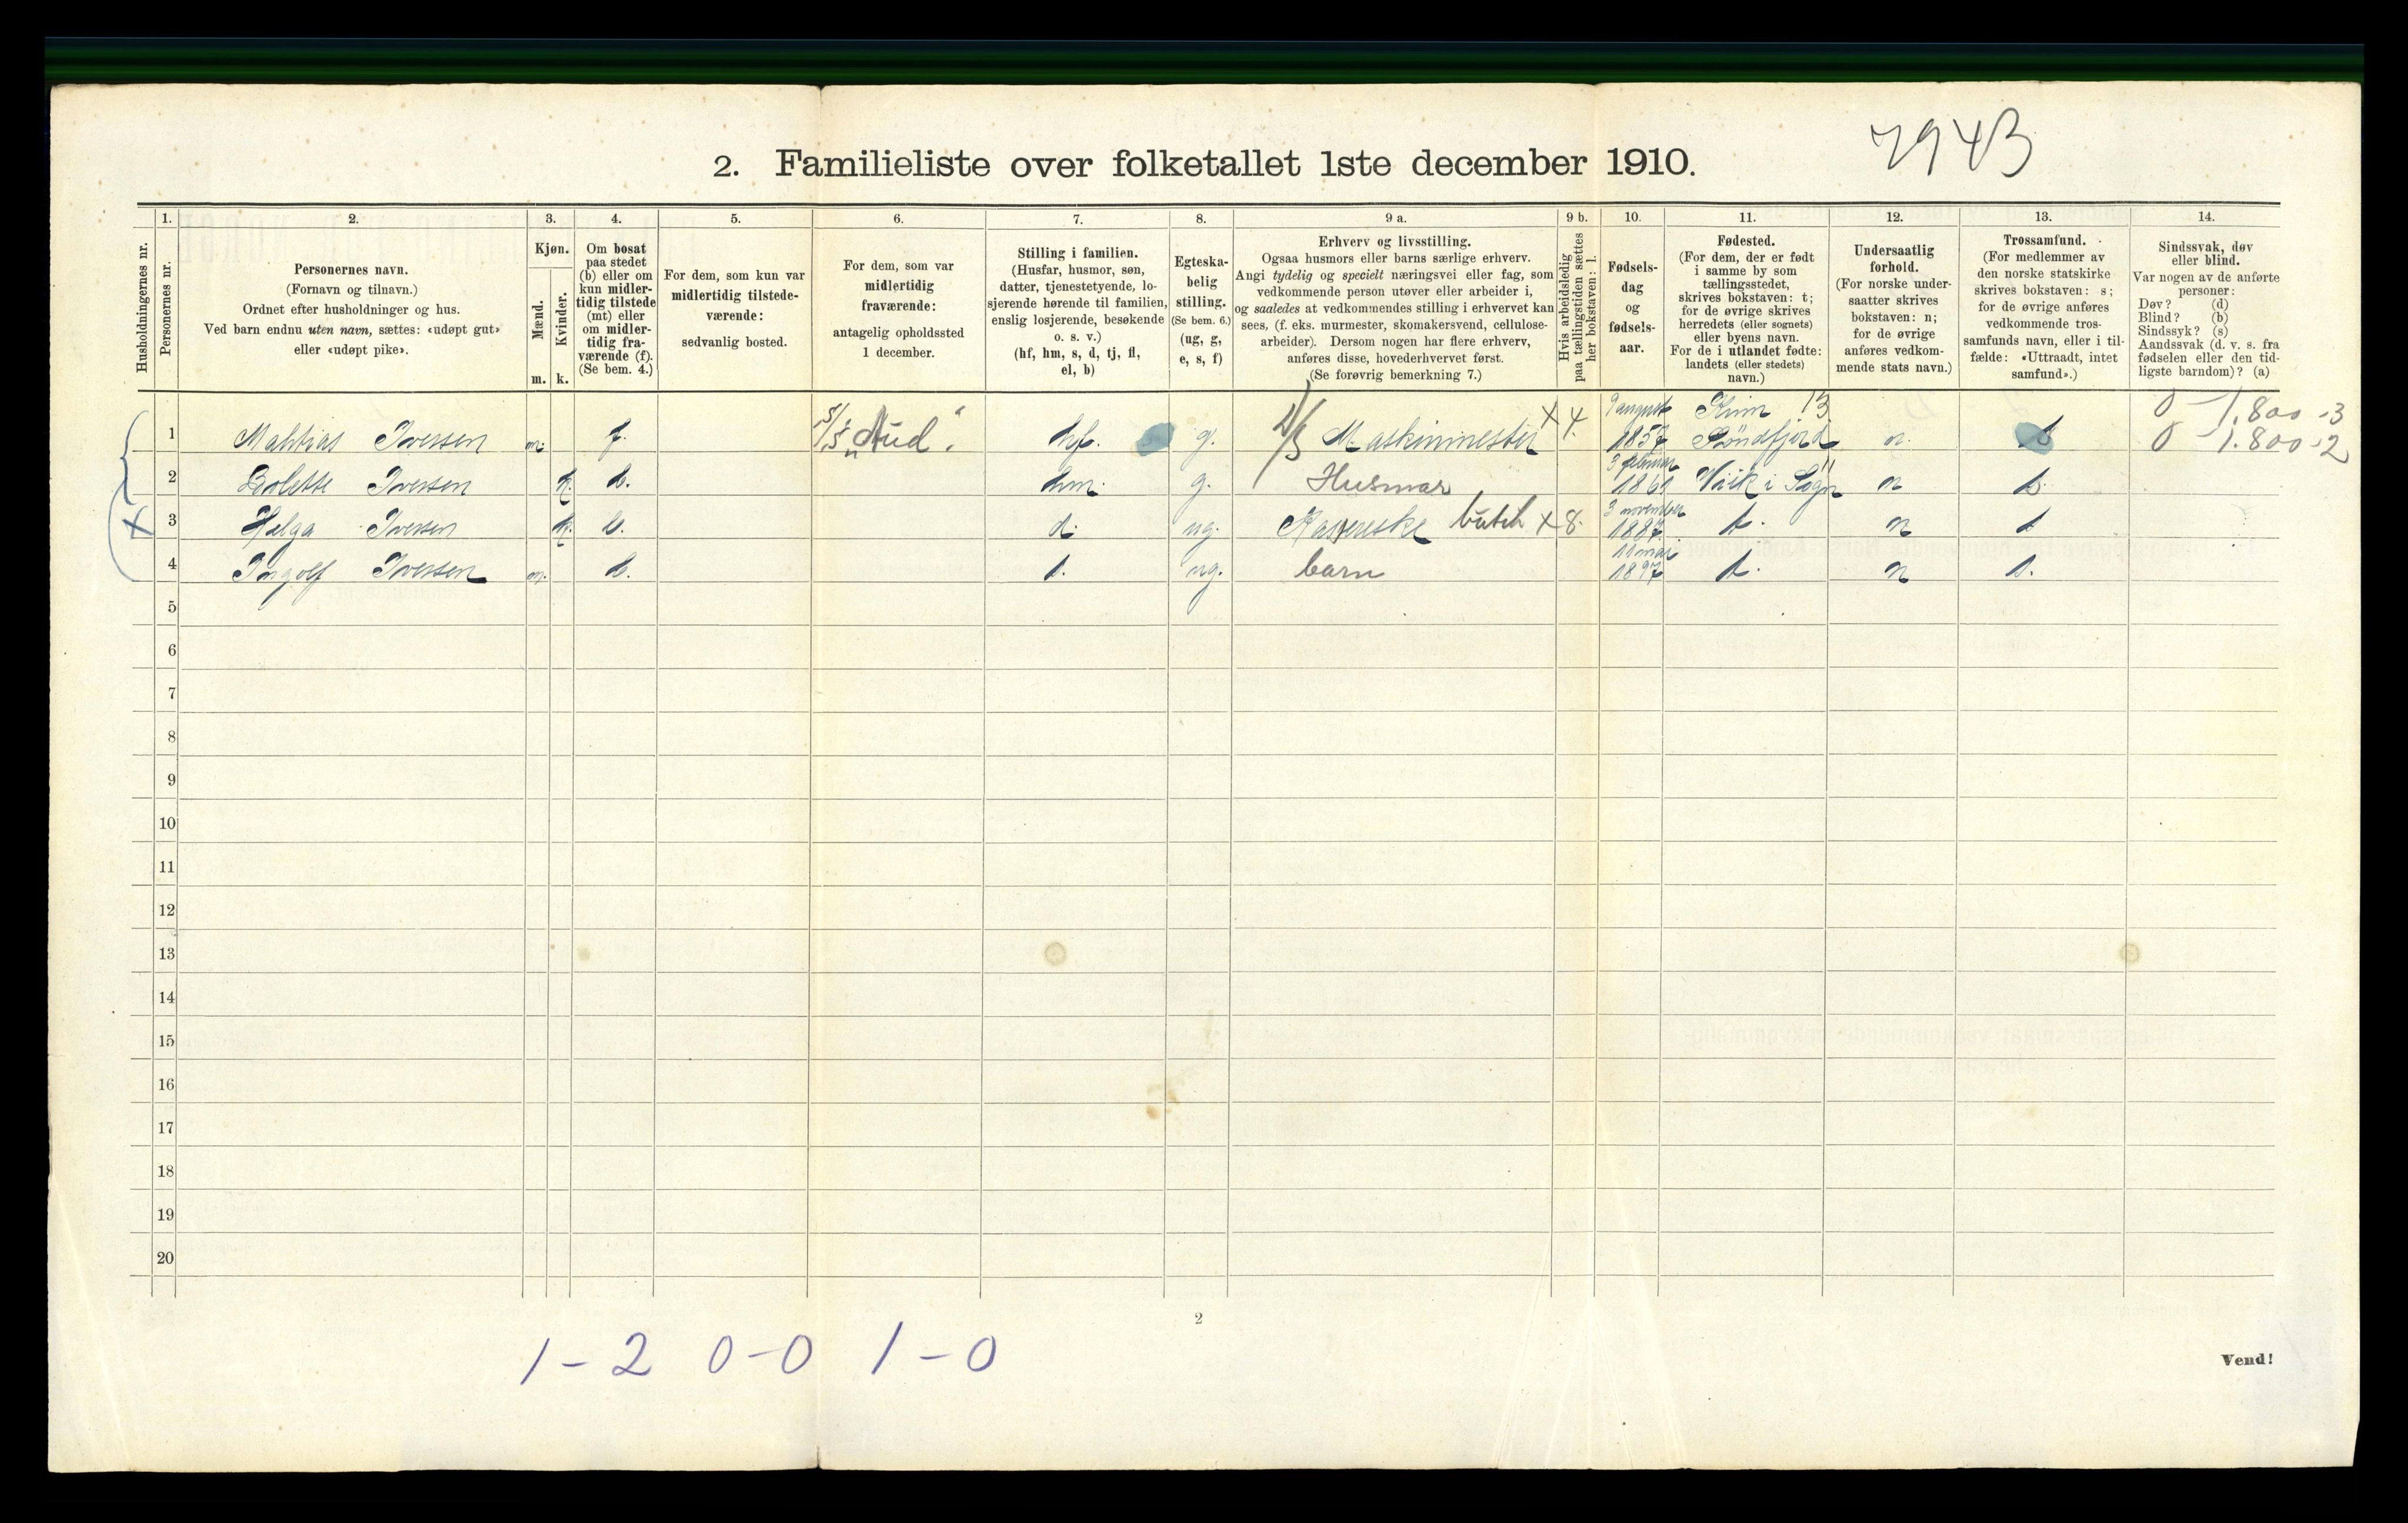 7943
2. Familieliste over folketallet 1ste december 1910.
Husholdningernes nr.
1. Personernes nr.
2. Personernes navn.
(Fornavn og tilnavn.)
Ordnet efter husholdninger og hus.
Ved barn endnu uten navn, sættes: «udøpt gut»
eller «udøpt pike».
3. Kjøn.
Mænd. m.
Kvinder. k.
4. Om bosat
paa stedet
(b) eller om
kun midler-
tidig tilstede
(mt) eller
om midler-
tidig fra-
værende (f).
(Se bem. 4.)
5. For dem, som kun var
midlertidig tilstede-
værende:
sedvanlig bosted.
6. For dem, som var
midlertidig
fraværende:
antagelig opholdssted
1 december.
7. Stilling i familien.
(Husfar, husmor, søn,
datter, tjenestetyende, lo-
sjerende hørende til familien,
enslig losjerende, besøkende
o. s. v.)
(hf, hm, s, d, tj, fl,
el, b)
8. Egteska-
belig
stilling.
(Se bem. 6.)
(ug, g,
e, s, f)
9 a. Erhverv og livsstilling.
Ogsaa husmors eller barns særlige erhverv.
Angi tydelig og specielt næringsvei eller fag, som
vedkommende person utøver eller arbeider i,
og saaledes at vedkommendes stilling i erhvervet kan
sees, (f. eks. murmester, skomakersvend, cellulose-
arbeider). Dersom nogen har flere erhverv,
anføres disse, hovederhvervet først.
(Se forøvrig bemerkning 7.)
9 b. Hvis arbeidsledig
paa tællingstiden sættes
her bokstaven: l.
10. Fødsels-
dag
og
fødsels-
aar.
11. Fødested.
(For dem, der er født
i samme by som
tællingsstedet,
skrives bokstaven: t;
for de øvrige skrives
herredets (eller sognets)
eller byens navn.
For de i utlandet fødte:
landets (eller stedets)
navn.)
12. Undersaatlig
forhold.
(For norske under-
saatter skrives
bokstaven: n;
for de øvrige
anføres vedkom-
mende stats navn.)
13. Trossamfund.
(For medlemmer av
den norske statskirke
skrives bokstaven: s;
for de øvrige anføres
vedkommende tros-
samfunds navn, eller i til-
fælde: «Uttraadt, intet
samfund».)
14. Sindssvak, døv
eller blind.
Var nogen av de anførte
personer:
Døv? (d)
Blind? (b)
Sindssyk? (s)
Aandssvak (d. v. s. fra
fødselen eller den tid-
ligste barndom)? (a)
1 Mathias Iversen m. f. hf. g. Maskinmester x 4. 9 august 1857 Søndfjord 13 n. s 0 – 1.800 – 3
0 – 1.800 – 2
2 Bolette Iversen k. b. hm. g. Husmor 3 februar 1861 Viik i Sogn n s.
3 Helga Iversen k. b. d. ug. butik x 8. 3 november 1887 t. n s
4 Ingolf Iversen m. b. s. ug. barn 11 mai 1897 t. n s.
5
6
7
8
9
10
11
12
13
14
15
16
17
18
19
20
2
1 – 2 0 – 0 1 – 0
Vend!